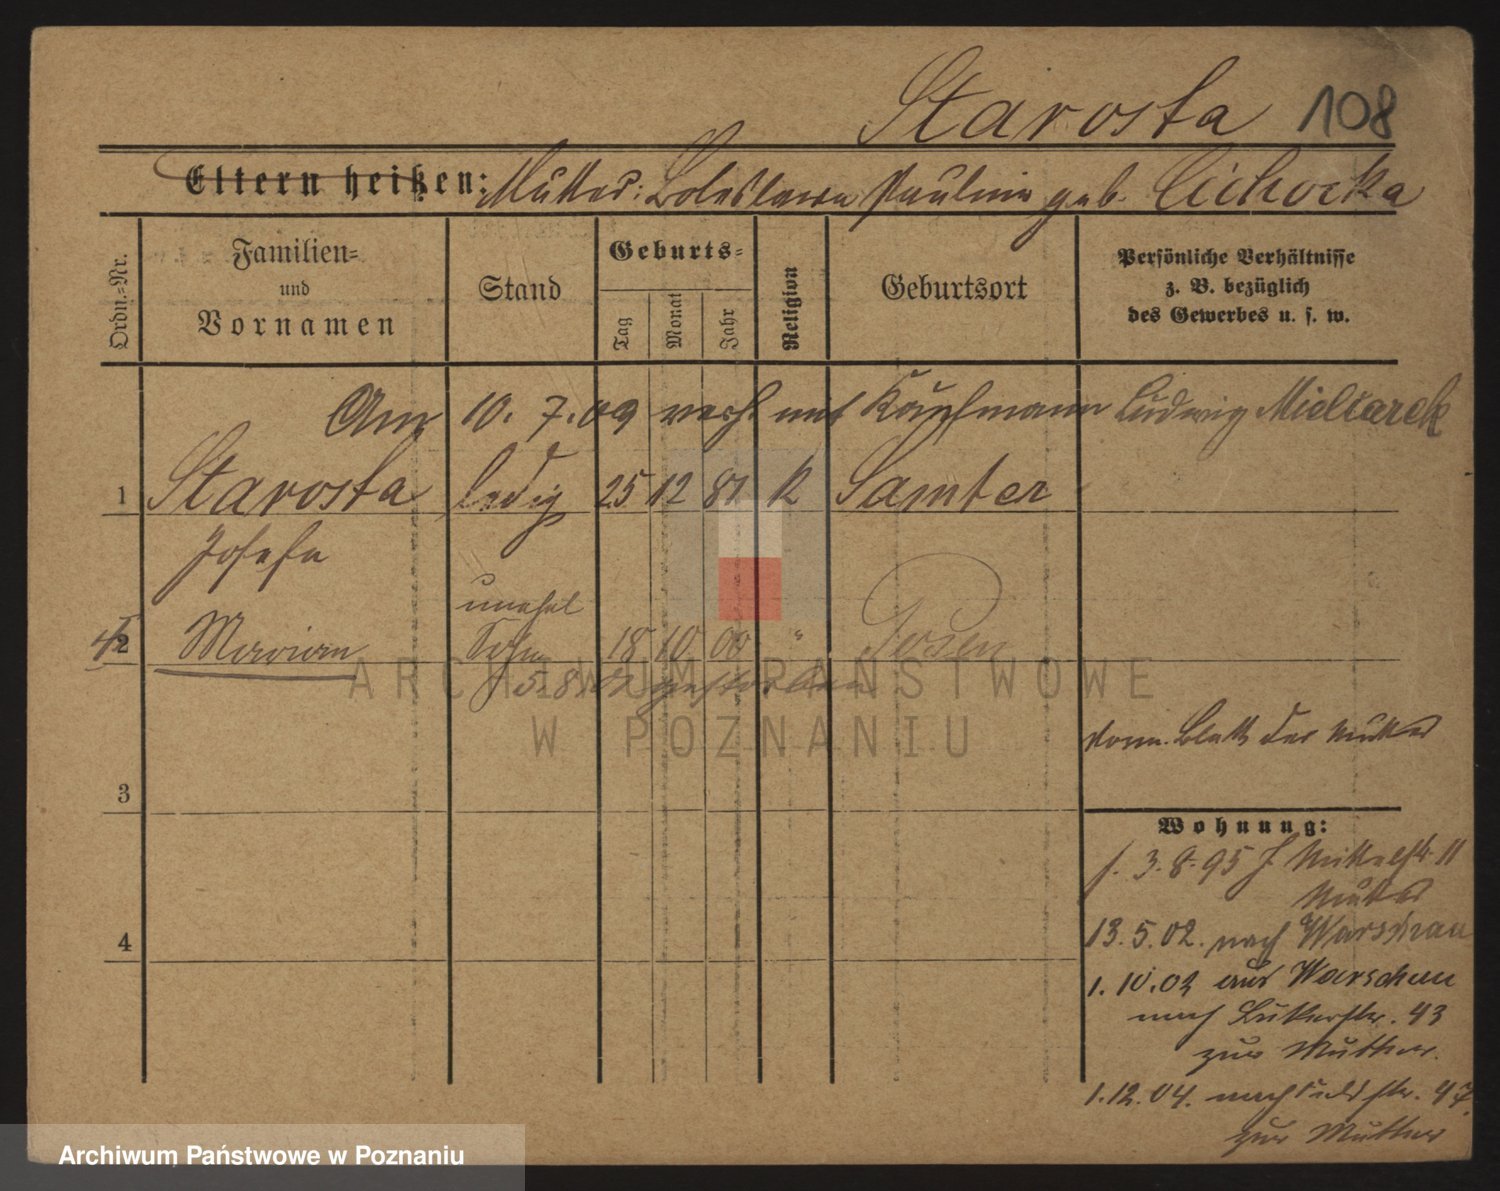 Starosta 108
Eltern heißen: Mutter: Boleslawa Pauline geb. Cichocka
Ordn.-Nr.
Familien-
und
Vornamen
Stand
Geburts-
Tag
Monat
Jahr
Religion
Geburtsort
Persönliche Verhältnisse
z. B. bezüglich
des Gewerbes u. s. w.
Am 10. 7. 09 verh. mit Kaufmann Ludwig Mielcarek
1 Starosta ledig 25 12 81 K Samter
Josefa
unehel
2 Marian Sohn 18 10 00 " Posen
5. 8. gestorben
Blatt der Mutter
3
Wohnung:
3. 8. 95 Mittelstr. 11
Mutter
13. 5. 02. nach Warschau
4
1. 10. 02 aus Warschau
nach Bukerstr. 43
zur Mutter.
1. 12. 04. nach str. 47
zur Mutter
ARCHIWUM PAŃSTWOWE
W POZNANIU
Archiwum Państwowe w Poznaniu